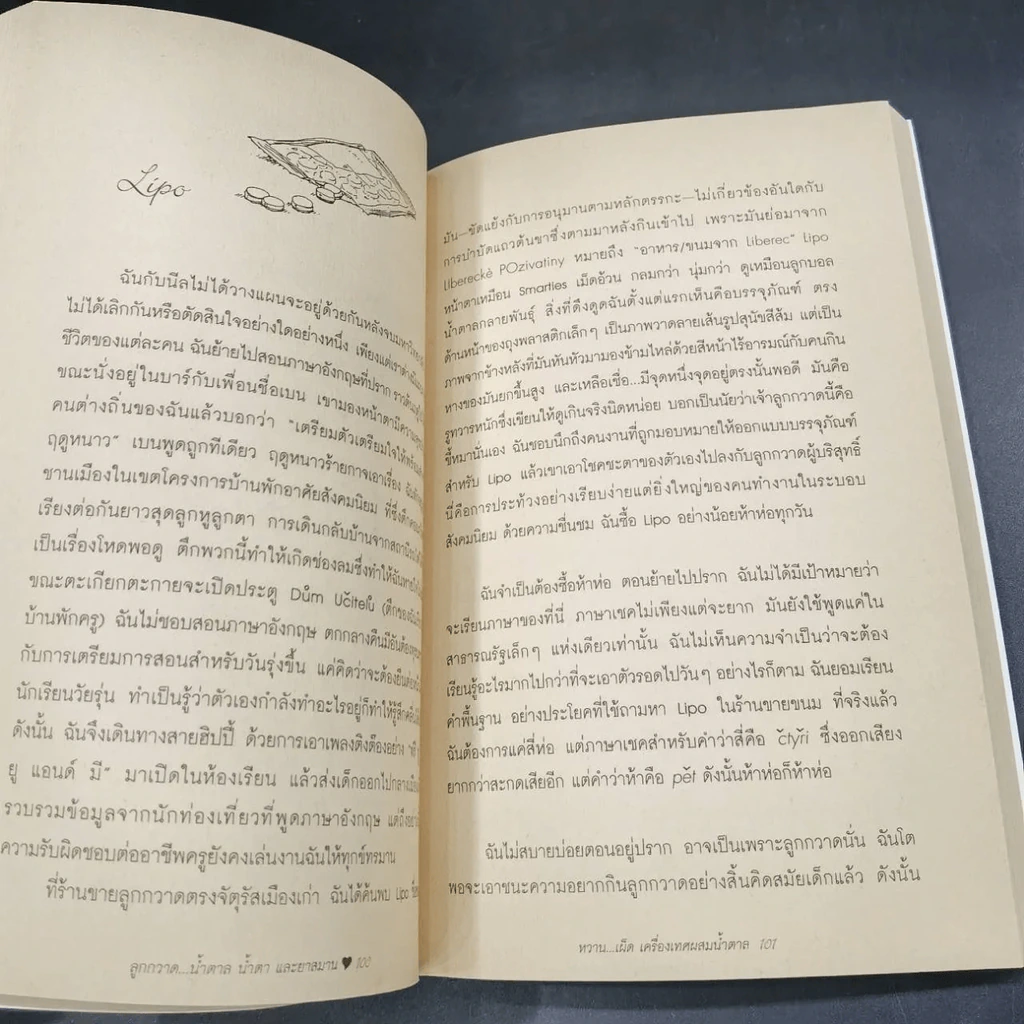 Lipo
ฉันกับนีลไม่ได้วางแผนจะอยู่ด้วยกันหลังจบมหาวิทยาลัย
ไม่ได้เลิกกันหรือตัดสินใจอย่างใดอย่างหนึ่ง เพียงแต่เราต่าง
ชีวิตของแต่ละคน ฉันย้ายไปสอนภาษาอังกฤษที่ปราก
ขณะนั่งอยู่ในบาร์กับเพื่อนชื่อเบน เขามองหน้าตามีความ
คนต่างถิ่นของฉันแล้วบอกว่า “เตรียมตัวเตรียมใจให้พร้อม
ฤดูหนาว” เบนพูดถูกทีเดียว ฤดูหนาวร้ายกาจเอาเรื่อง
ชานเมืองในเขตโครงการบ้านพักอาศัยสังคมนิยม ที่ซึ่งตึก
เรียงต่อกันยาวสุดลูกหูลูกตา การเดินกลับบ้านจากสถานี
เป็นเรื่องโหดพอดู ตึกพวกนี้ทำให้เกิดช่องลมซึ่งทำให้ฉัน
ขณะตะเกียกตะกายจะเปิดประตู Dům Učitelů (ตึกของฉัน
บ้านพักครู) ฉันไม่ชอบสอนภาษาอังกฤษ ตกกลางคืนมีอันต้อง
กับการเตรียมการสอนสำหรับวันรุ่งขึ้น แค่คิดว่าจะต้องยืน
นักเรียนวัยรุ่น ทำเป็นรู้ว่าตัวเองกำลังทำอะไรอยู่ก็ทำให้รู้สึก
ดังนั้น ฉันจึงเดินทางสายฮิปปี้ ด้วยการเอาเพลงติงต๊องอย่าง
ยู แอนด์ มี” มาเปิดในห้องเรียน แล้วส่งเด็กออกไปกลางเมือง
รวบรวมข้อมูลจากนักท่องเที่ยวที่พูดภาษาอังกฤษ แต่ถึงอย่าง
ความรับผิดชอบต่ออาชีพครูยังคงเล่นงานฉันให้ทุกข์ทรมาน
ที่ร้านขายลูกกวาดตรงจัตุรัสเมืองเก่า ฉันได้ค้นพบ Lipo
ลูกกวาด...น้ำตาล น้ำตา และยาสมาน ♥ 100
มัน—ขัดแย้งกับการอนุมานตามหลักตรรกะ—ไม่เกี่ยวข้องอันใดกับ
การบำบัดแถวต้นขาซึ่งตามมาหลังกินเข้าไป เพราะมันย่อมาจาก
Liberecké POzivatiny หมายถึง “อาหาร/ขนมจาก Liberec” Lipo
หน้าตาเหมือน Smarties เม็ดอ้วน กลมกว่า นุ่มกว่า ดูเหมือนลูกบอล
น้ำตาลกลายพันธุ์ สิ่งที่ดึงดูดฉันตั้งแต่แรกเห็นคือบรรจุภัณฑ์ ตรง
ด้านหน้าของถุงพลาสติกเล็กๆ เป็นภาพวาดลายเส้นรูปสุนัขสีส้ม แต่เป็น
ภาพจากข้างหลังที่มันหันหัวมามองข้ามไหล่ด้วยสีหน้าไร้อารมณ์กับคนกิน
หางของมันยกขึ้นสูง และเหลือเชื่อ...มีจุดหนึ่งจุดอยู่ตรงนั้นพอดี มันคือ
รูทวารหนักซึ่งเขียนให้ดูเกินจริงนิดหน่อย บอกเป็นนัยว่าเจ้าลูกกวาดนี้คือ
ขี้หมานั่นเอง ฉันชอบนึกถึงคนงานที่ถูกมอบหมายให้ออกแบบบรรจุภัณฑ์
สำหรับ Lipo แล้วเขาเอาโชคชะตาของตัวเองไปลงกับลูกกวาดผู้บริสุทธิ์
นี่คือการประท้วงอย่างเรียบง่ายแต่ยิ่งใหญ่ของคนทำงานในระบอบ
สังคมนิยม ด้วยความชื่นชม ฉันซื้อ Lipo อย่างน้อยห้าห่อทุกวัน
ฉันจำเป็นต้องซื้อห้าห่อ ตอนย้ายไปปราก ฉันไม่ได้มีเป้าหมายว่า
จะเรียนภาษาของที่นี่ ภาษาเชคไม่เพียงแต่จะยาก มันยังใช้พูดแค่ใน
สาธารณรัฐเล็กๆ แห่งเดียวเท่านั้น ฉันไม่เห็นความจำเป็นว่าจะต้อง
เรียนรู้อะไรมากไปกว่าที่จะเอาตัวรอดไปวันๆ อย่างไรก็ตาม ฉันยอมเรียน
คำพื้นฐาน อย่างประโยคที่ใช้ถามหา Lipo ในร้านขายขนม ที่จริงแล้ว
ฉันต้องการแค่สี่ห่อ แต่ภาษาเชคสำหรับคำว่าสี่คือ čtyři ซึ่งออกเสียง
ยากกว่าสะกดเสียอีก แต่คำว่าห้าคือ pět ดังนั้นห้าห่อก็ห้าห่อ
ฉันไม่สบายบ่อยตอนอยู่ปราก อาจเป็นเพราะลูกกวาดนั่น ฉันโต
พอจะเอาชนะความอยากกินลูกกวาดอย่างสิ้นคิดสมัยเด็กแล้ว ดังนั้น
หวาน...เผ็ด เครื่องเทศผสมน้ำตาล 101